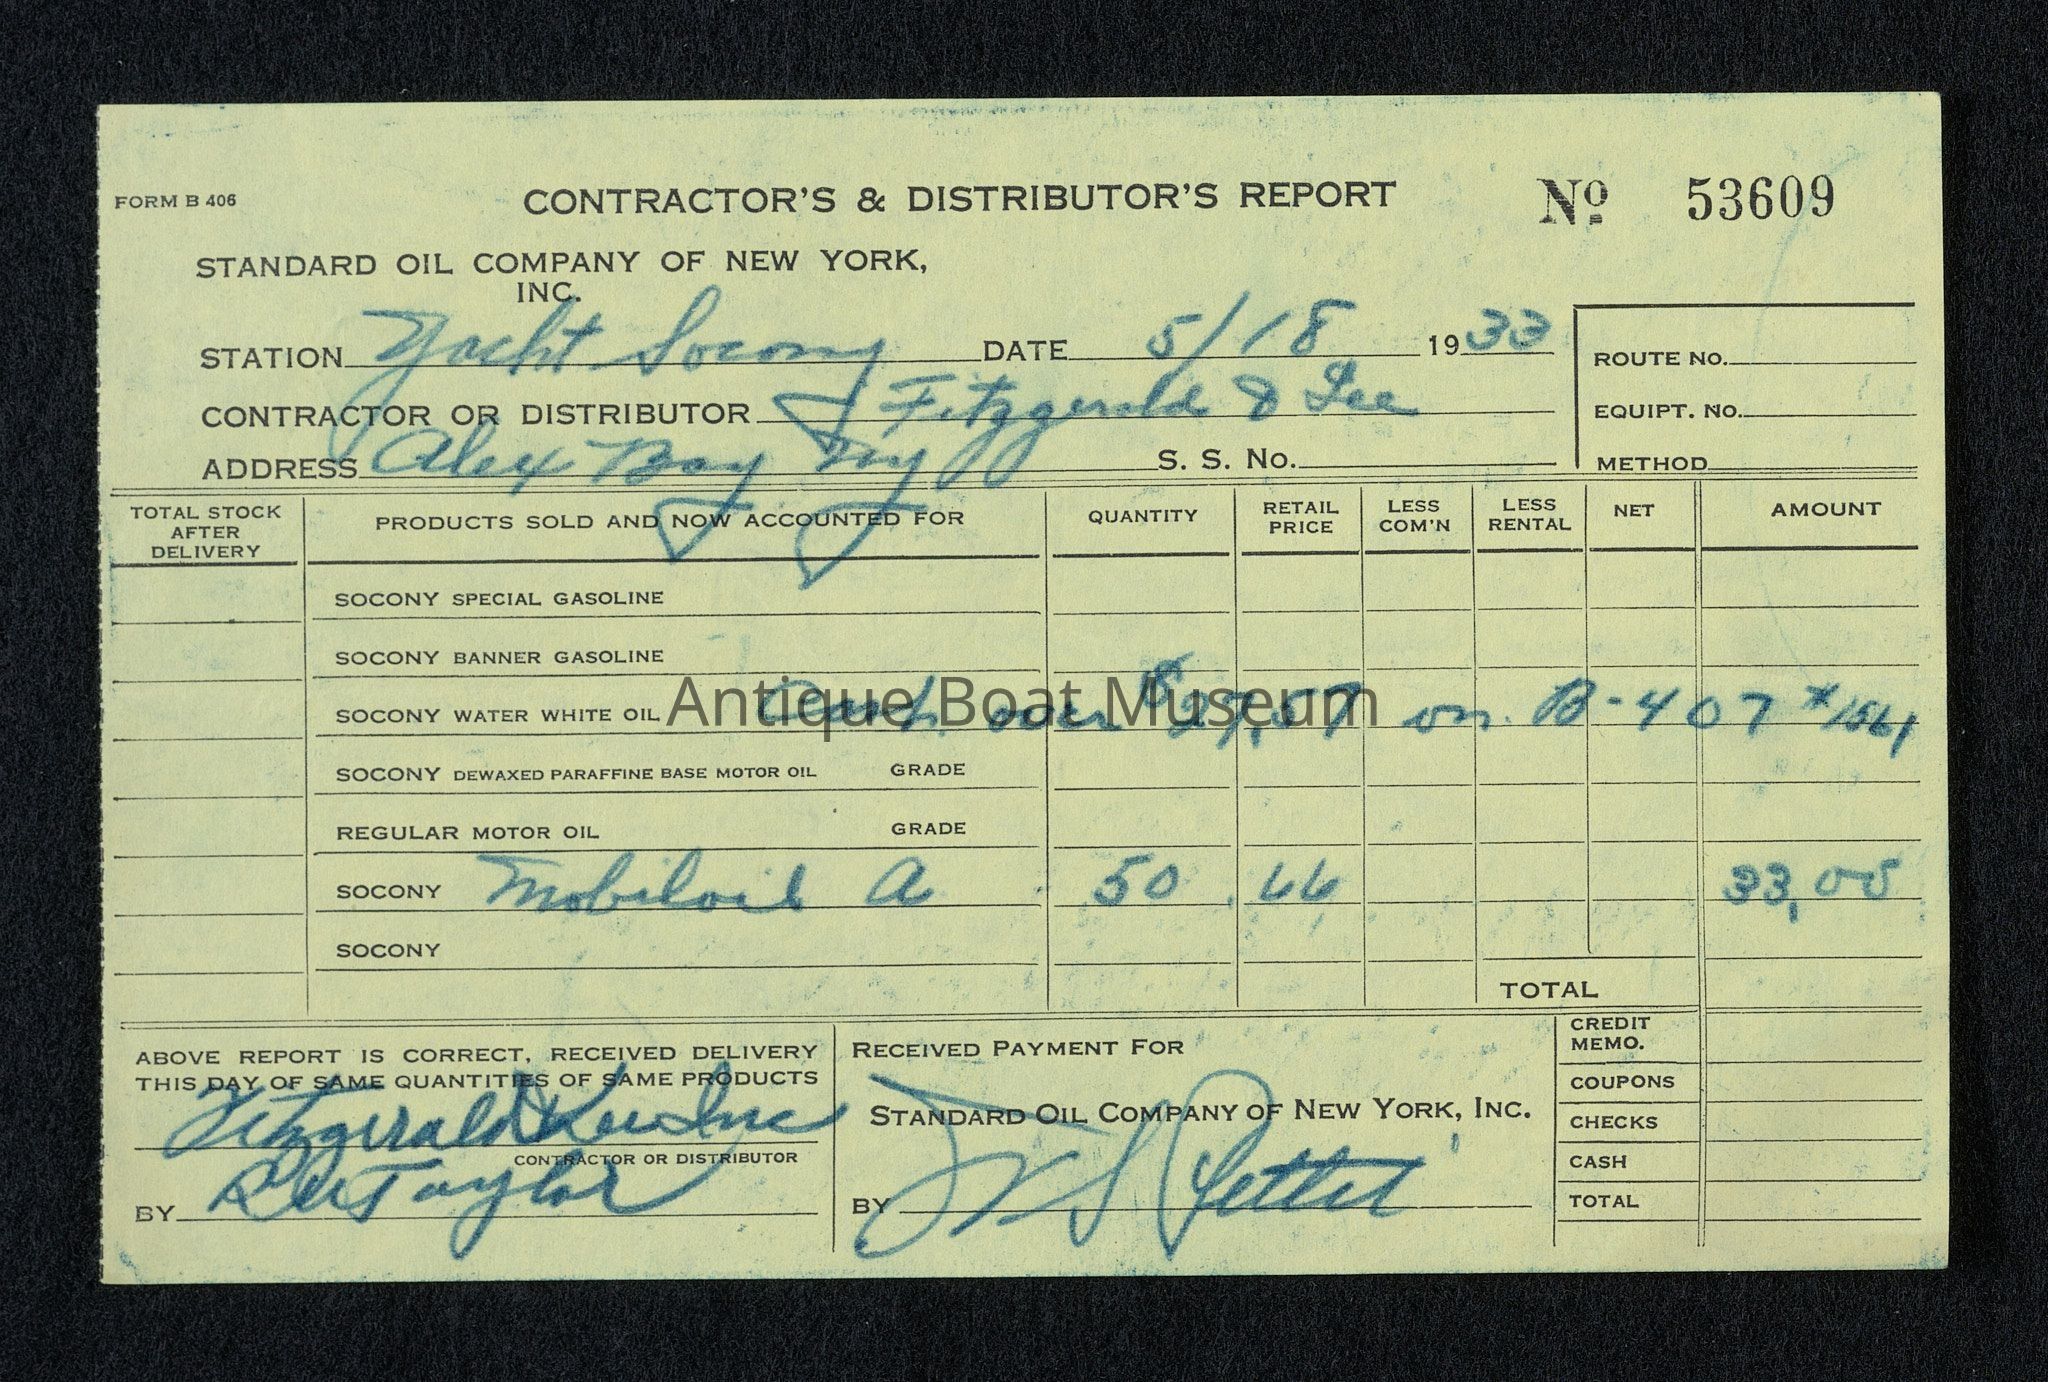 FORM B 406
CONTRACTOR'S & DISTRIBUTOR'S REPORT
Nº 53609
STANDARD OIL COMPANY OF NEW YORK,
INC.
STATION Yacht Socony DATE 5/18 1933
ROUTE NO.
CONTRACTOR OR DISTRIBUTOR Fitzgerald & Lee
EQUIPT. NO.
ADDRESS Alex Bay Ny S. S. No.
METHOD
TOTAL STOCK AFTER DELIVERY
PRODUCTS SOLD AND NOW ACCOUNTED FOR
QUANTITY
RETAIL PRICE
LESS COM'N
LESS RENTAL
NET
AMOUNT
SOCONY SPECIAL GASOLINE
SOCONY BANNER GASOLINE
SOCONY WATER WHITE OIL Cash over $ 27.57 on B-407 #1561
Antique Boat Museum
SOCONY DEWAXED PARAFFINE BASE MOTOR OIL GRADE
REGULAR MOTOR OIL GRADE
SOCONY Mobiloil A 50 .66 33,00
SOCONY
TOTAL
ABOVE REPORT IS CORRECT, RECEIVED DELIVERY
THIS DAY OF SAME QUANTITIES OF SAME PRODUCTS
Fitzgerald & Lee Inc
CONTRACTOR OR DISTRIBUTOR
BY Taylor
RECEIVED PAYMENT FOR
STANDARD OIL COMPANY OF NEW YORK, INC.
BY Pettit
CREDIT MEMO.
COUPONS
CHECKS
CASH
TOTAL